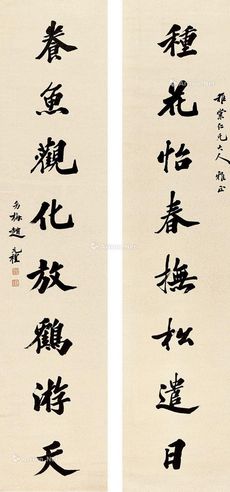 雅棠仁兄大人雅正
種花怡春撫松遣日
養魚觀化放鶴游天